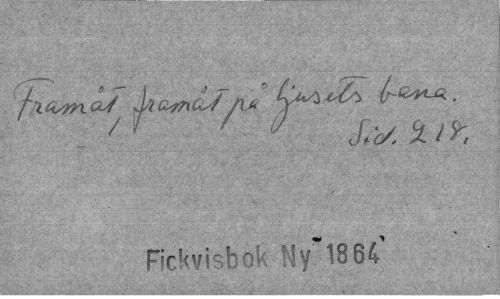 Framåt, framåt på ljusets bana.
Sid. 218.
Fickvisbok Ny 1864